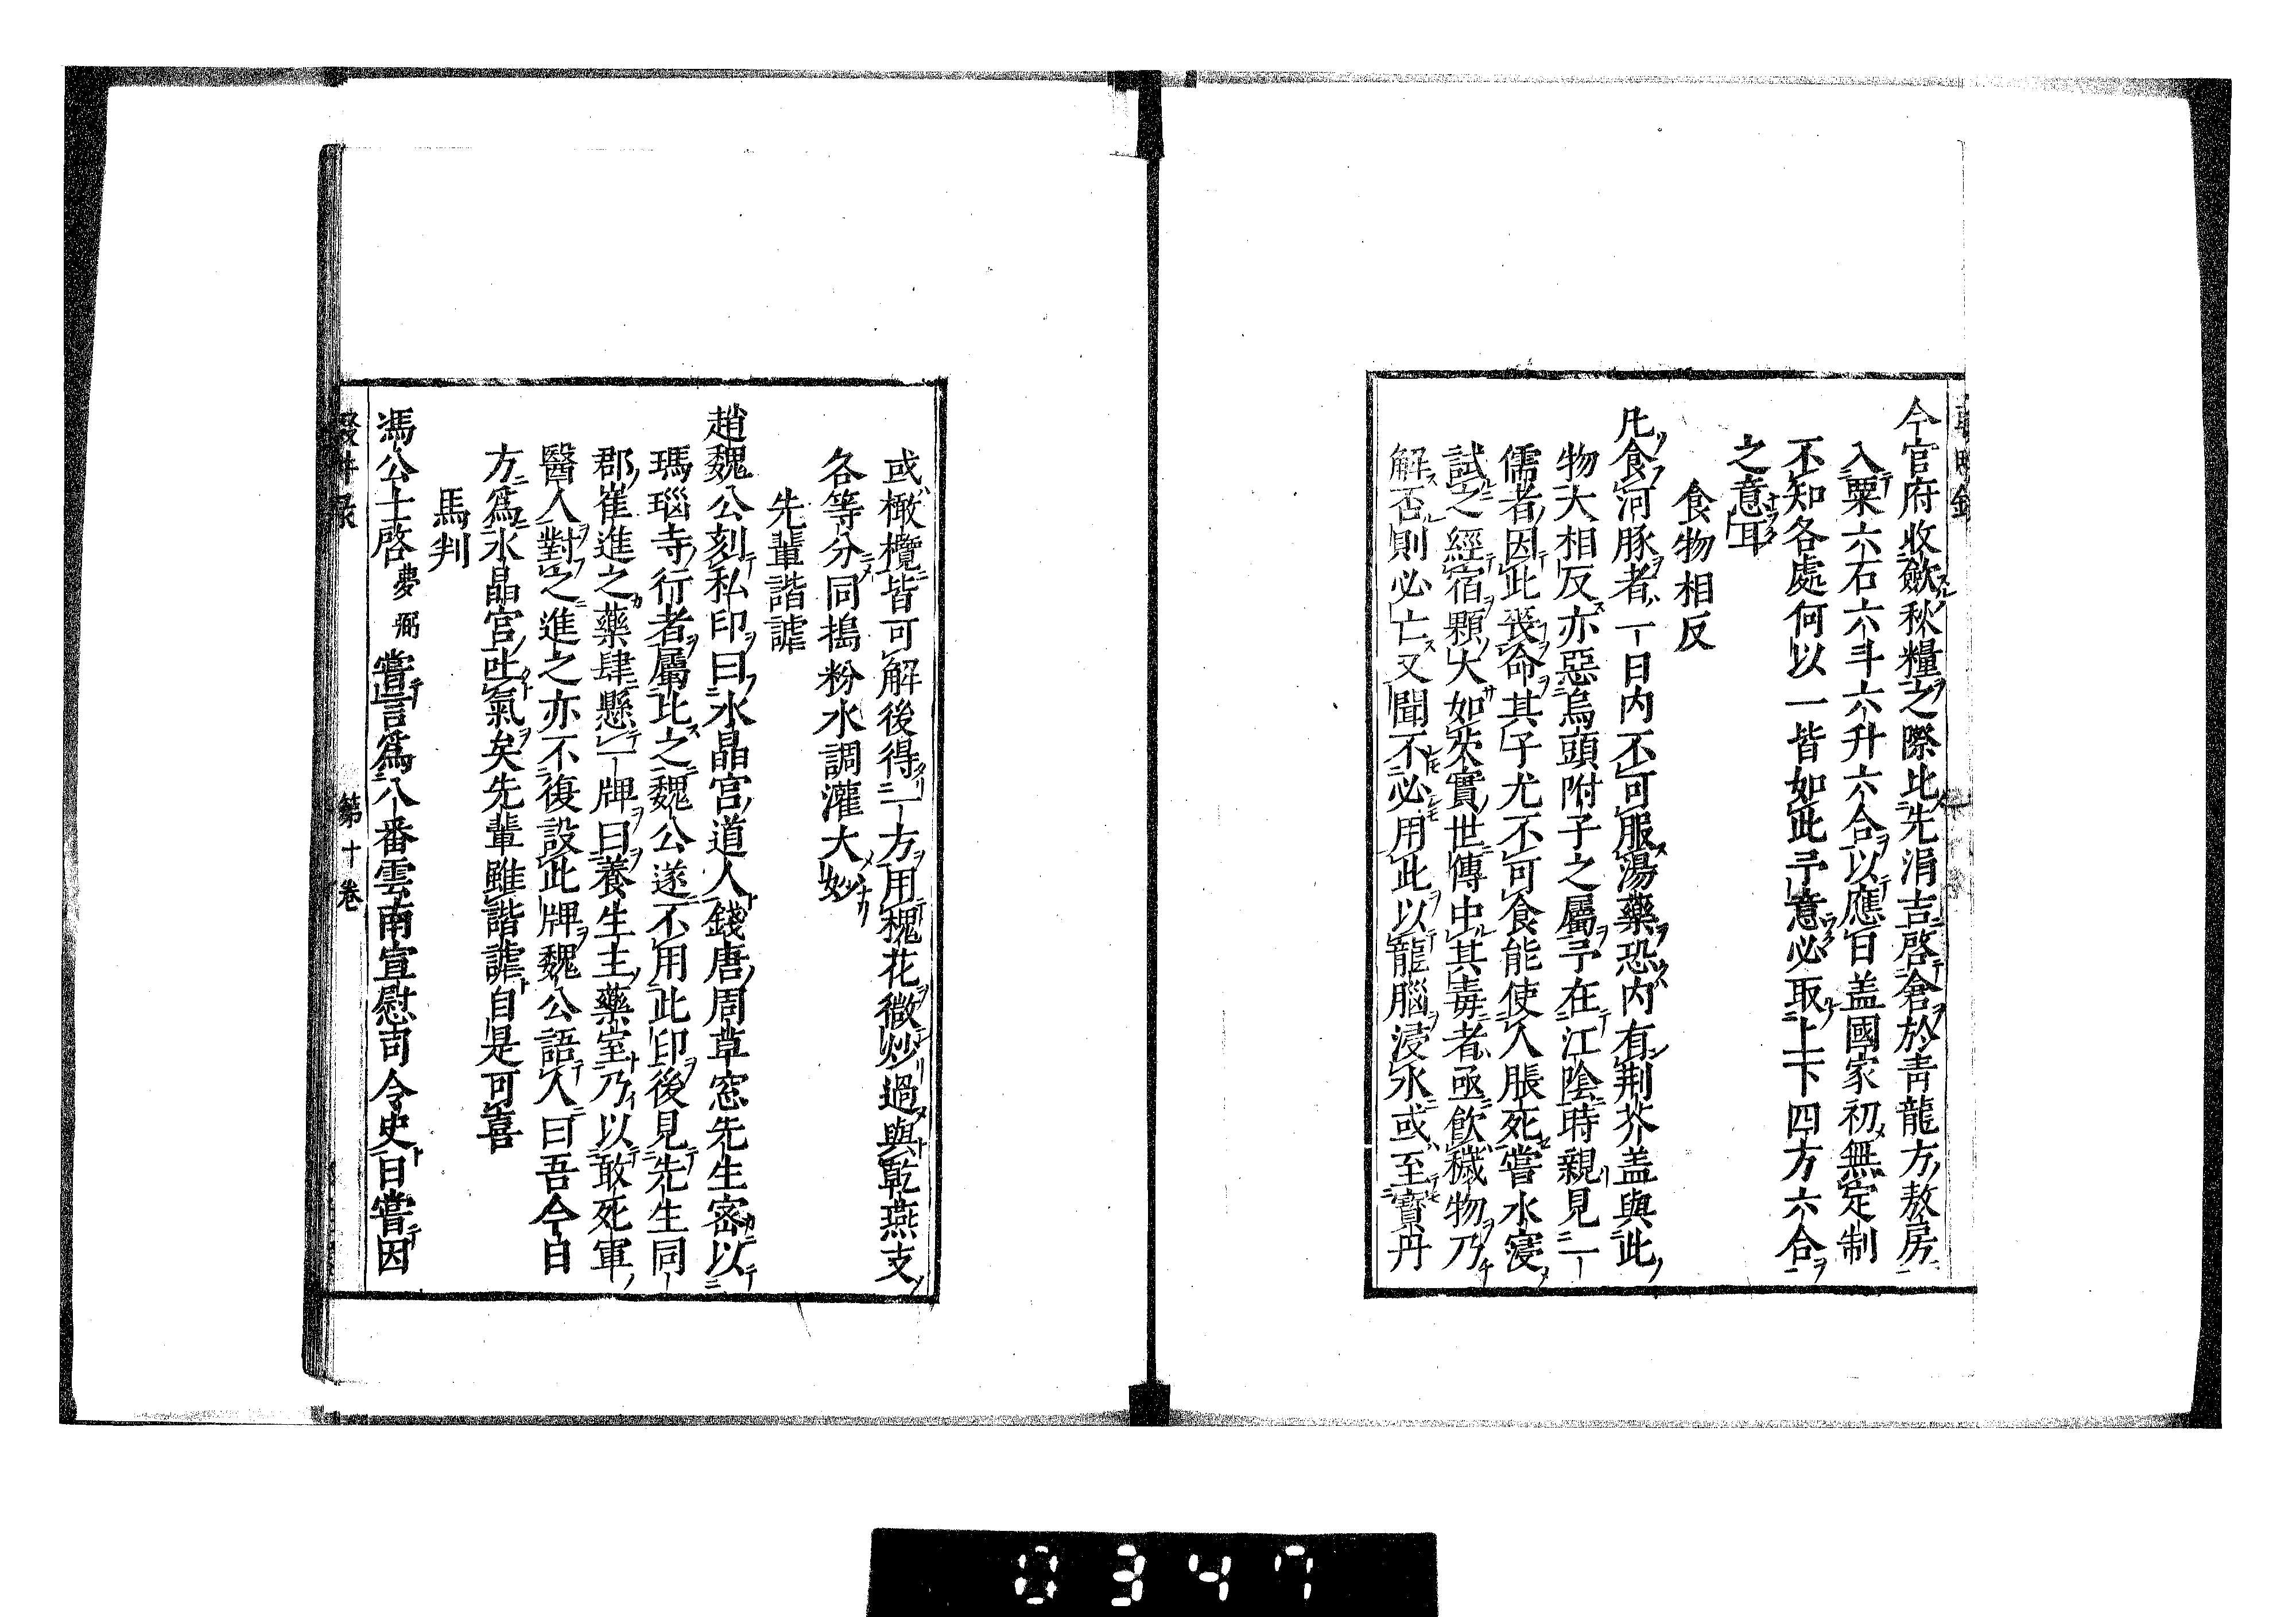 今官府收斂秋糧之際此先涓吉啓倉於青龍方敖房
入粟六石六斗六升六合以應日盖國家初無定制
不知各處何以一皆如此予意必取上下四方六合
之意耳
食物相反
凡食河豚者一日内不可服湯藥恐内有荆芥盖與此
物大相反亦惡烏頭附子之屬予在江陰時親見一
儒者因此喪命其子尤不可食能使人脹死嘗水浸
試之經宿顆大如芡實世傳中其毒者亟飲穢物乃
解否則必亡又聞不必用此以龍腦浸水或至寶丹
或橄欖皆可解後得一方用槐花微炒過與乾燕支
各等分同搗粉水調灌大妙
先輩諧謔
趙魏公刻私印曰水晶宫道人錢唐周草窓先生密以
瑪瑙寺行者屬比之魏公遂不用此印後見先生同
郡崔進之藥肆懸一牌曰養生主藥室乃以敢死軍
醫人對之進之亦不復設此牌魏公語人曰吾今日
方爲水晶宫吐氣矣先輩雖諧謔自是可喜
馬判
馮公士啓夢弼嘗言爲八番雲南宣慰司令史日嘗因
第十卷
0347